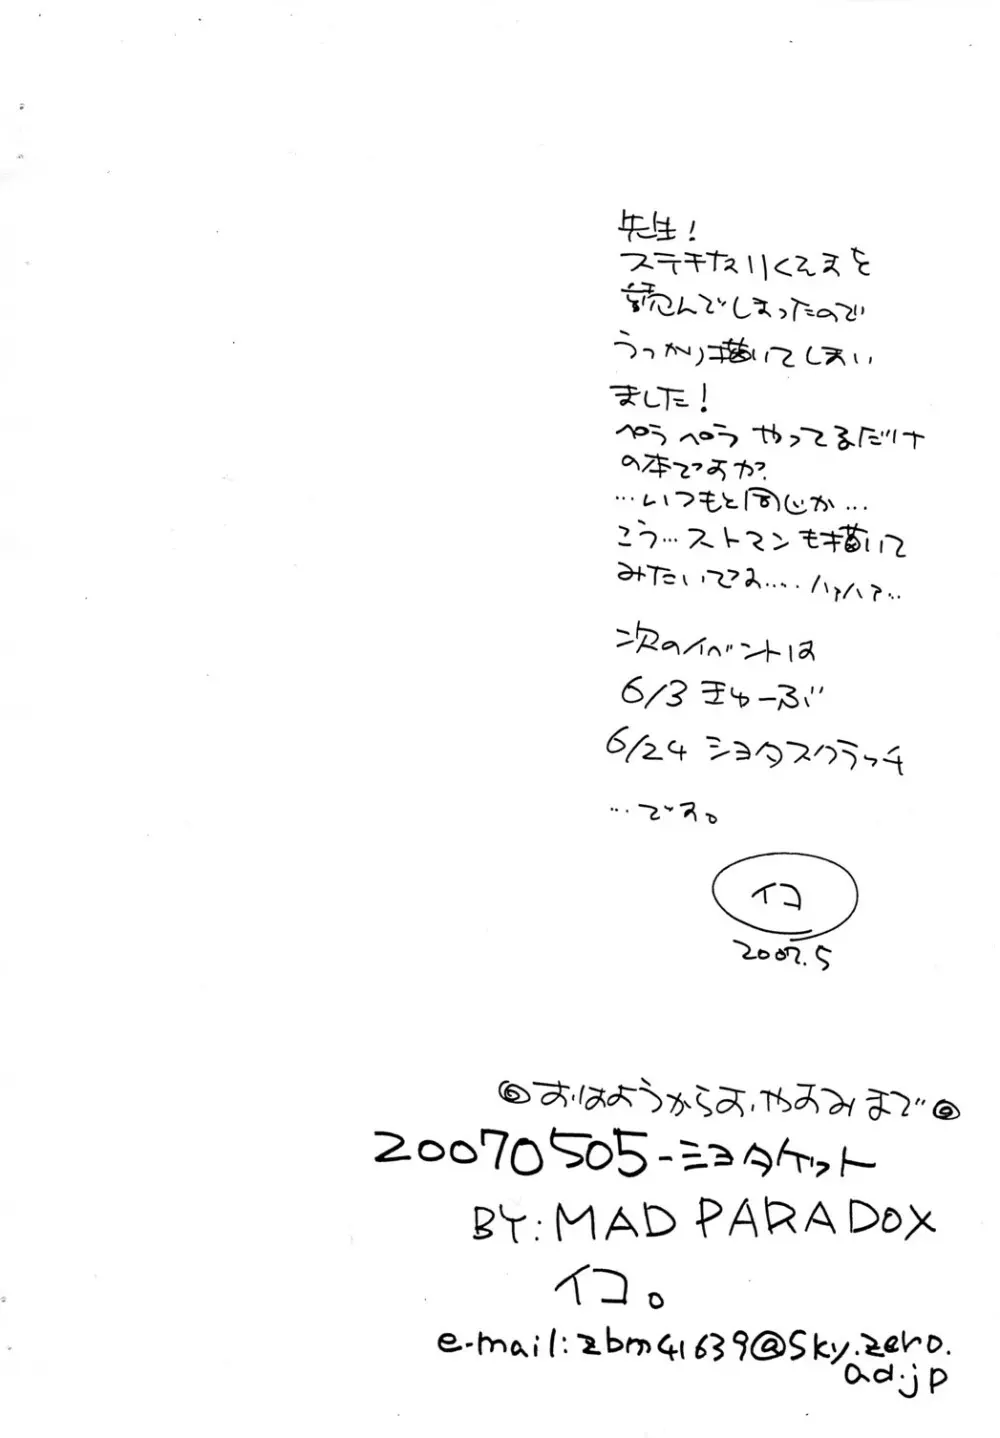 先生!
ステキなりくえすを
読んでしまったので
うっかり描いてしまい
ました!
ペラペラやってるだけ
の本ですか?
…いつもと同じか…
こう…ストマンも描いて
みたいでつね….ハァハァ…
次のイベントは
6/3 きゅーぶ
6/24 ショタスクラッチ
…です。
イコ
2007.5
◎おはようからおやすみまで◎
20070505-ショタケット
BY:MAD PARADOX
イコ。
e-mail:zbm41639@sky.zero.
ad.jp